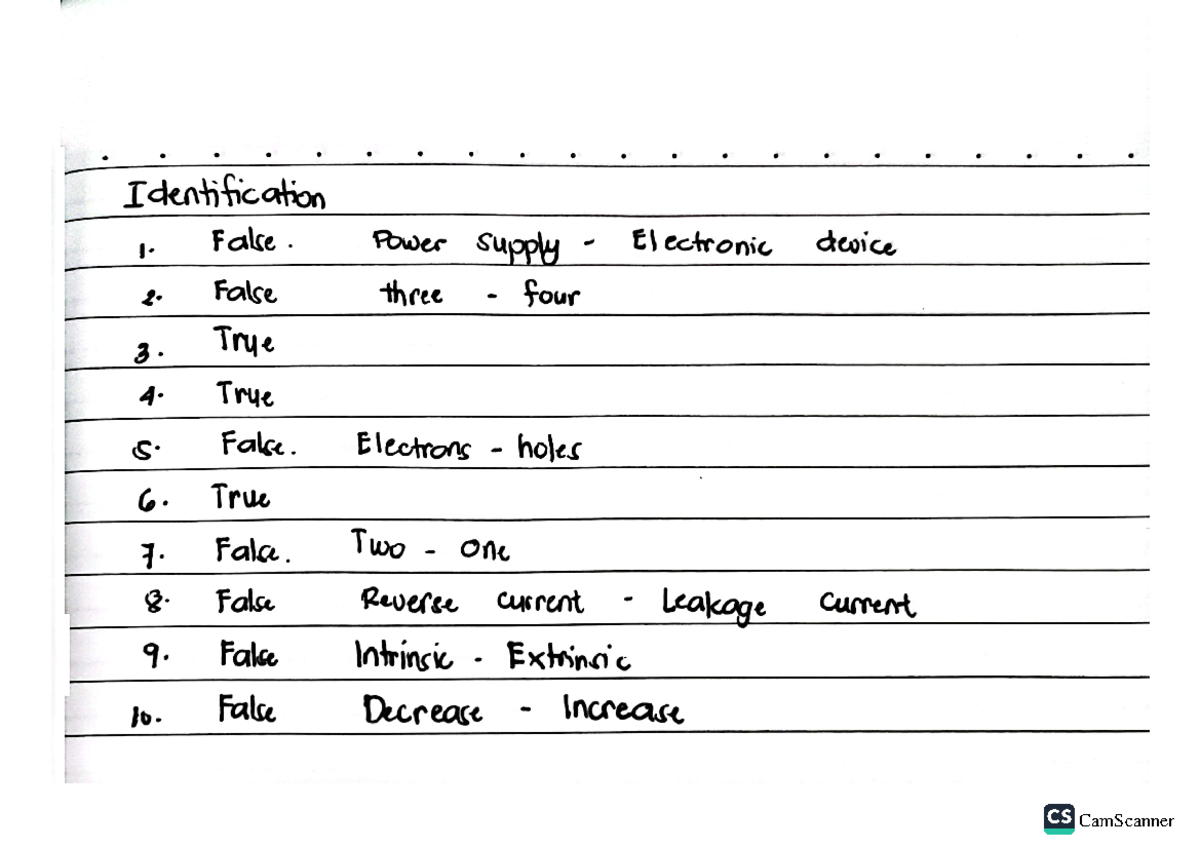 Identification
1. False. Power supply - Electronic device
2. False three - four
3. Trye
4. Trye
5. False. Electrons - holes
6. True
7. False. Two - one
8. False Reverse current - Leakage current
9. False Intrinsic - Extrinsic
10. False Decrease - Increase
CS CamScanner